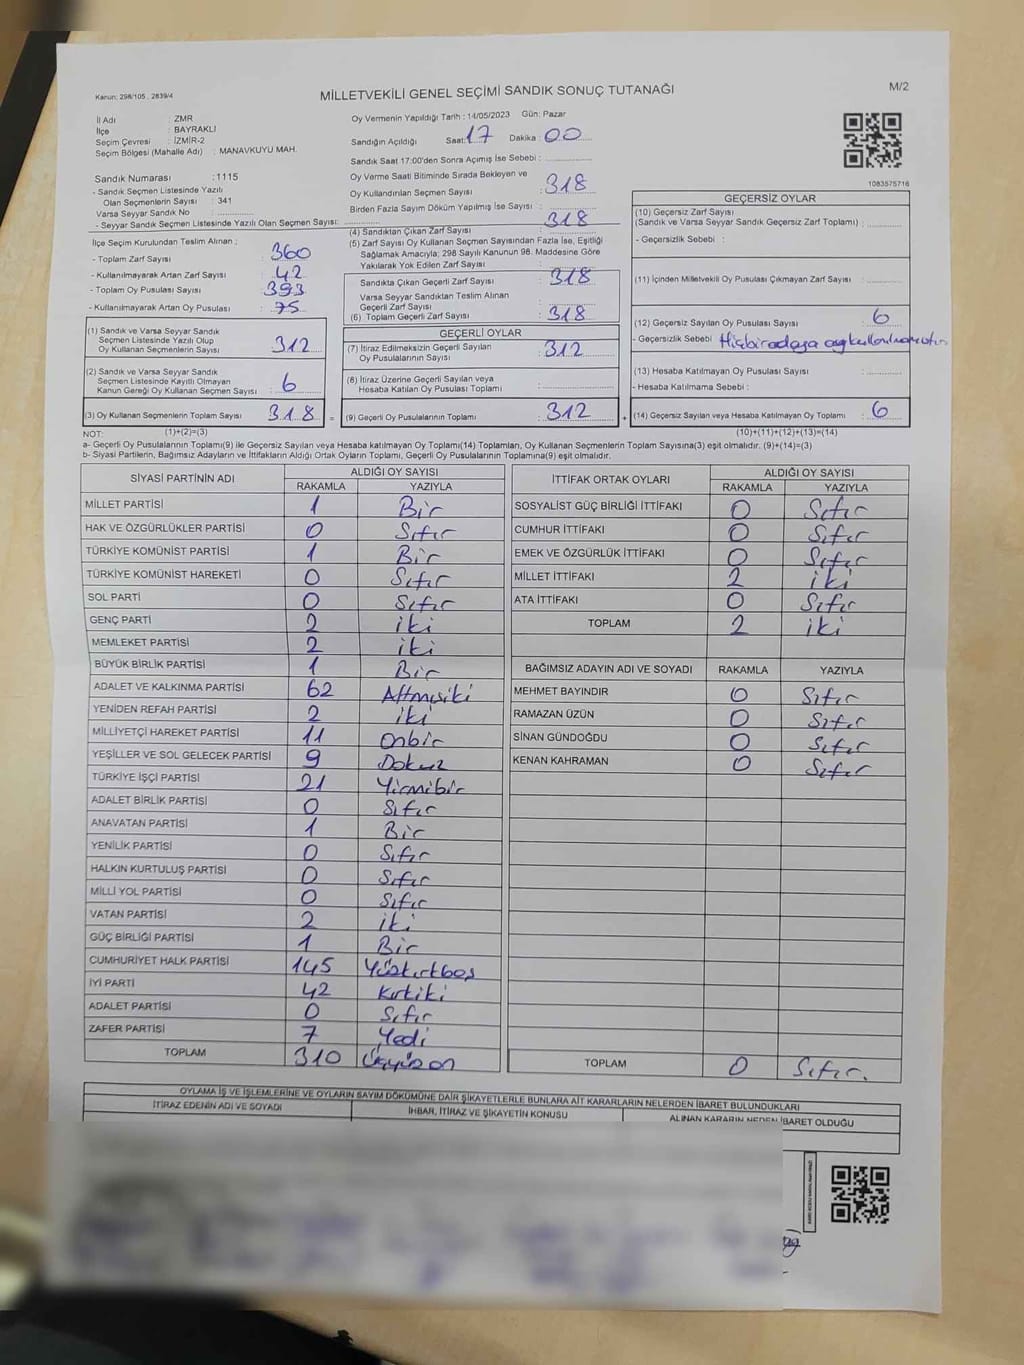 Kanun: 298/105, 2839/4
MİLLETVEKİLİ GENEL SEÇİMİ SANDIK SONUÇ TUTANAĞI
M/2
İl Adı : ZMR
İlçe : BAYRAKLI
Seçim Çevresi : İZMİR-2
Seçim Bölgesi (Mahalle Adı) : MANAVKUYU MAH.
Sandık Numarası : 1115
- Sandık Seçmen Listesinde Yazılı
Olan Seçmenlerin Sayısı : 341
Varsa Seyyar Sandık No :
- Seyyar Sandık Seçmen Listesinde Yazılı Olan Seçmen Sayısı:
İlçe Seçim Kurulundan Teslim Alınan :
- Toplam Zarf Sayısı : 360
- Kullanılmayarak Artan Zarf Sayısı : 42
- Toplam Oy Pusulası Sayısı : 393
- Kullanılmayarak Artan Oy Pusulası : 75
(1) Sandık ve Varsa Seyyar Sandık
Seçmen Listesinde Yazılı Olup
Oy Kullanan Seçmenlerin Sayısı : 312
(2) Sandık ve Varsa Seyyar Sandık
Seçmen Listesinde Kayıtlı Olmayan
Kanun Gereği Oy Kullanan Seçmen Sayısı : 6
(3) Oy Kullanan Seçmenlerin Toplam Sayısı : 318
(1)+(2)=(3)
Oy Vermenin Yapıldığı Tarih : 14/05/2023 Gün: Pazar
Sandığın Açıldığı Saat: 17 Dakika : 00
Sandık Saat 17:00'den Sonra Açımış İse Sebebi :
Oy Verme Saati Bitiminde Sırada Bekleyen ve
Oy Kullandırılan Seçmen Sayısı : 318
Birden Fazla Sayım Döküm Yapılmış İse Sayısı :
(4) Sandıktan Çıkan Zarf Sayısı : 318
(5) Zarf Sayısı Oy Kullanan Seçmen Sayısından Fazla İse, Eşitliği
Sağlamak Amacıyla; 298 Sayılı Kanunun 98. Maddesine Göre
Yakılarak Yok Edilen Zarf Sayısı :
Sandıkta Çıkan Geçerli Zarf Sayısı : 318
Varsa Seyyar Sandıktan Teslim Alınan
Geçerli Zarf Sayısı :
(6) Toplam Geçerli Zarf Sayısı : 318
GEÇERLİ OYLAR
(7) İtiraz Edilmeksizin Geçerli Sayılan
Oy Pusulalarının Sayısı : 312
(8) İtiraz Üzerine Geçerli Sayılan veya
Hesaba Katılan Oy Pusulası Toplamı :
= (9) Geçerli Oy Pusulalarının Toplamı : 312 +
1083575716
GEÇERSİZ OYLAR
(10) Geçersiz Zarf Sayısı
(Sandık ve Varsa Seyyar Sandık Geçersiz Zarf Toplamı) :
- Geçersizlik Sebebi :
(11) İçinden Milletvekili Oy Pusulası Çıkmayan Zarf Sayısı:
(12) Geçersiz Sayılan Oy Pusulası Sayısı : 6
- Geçersizlik Sebebi
(13) Hesaba Katılmayan Oy Pusulası Sayısı :
- Hesaba Katılmama Sebebi :
(14) Geçersiz Sayılan veya Hesaba Katılmayan Oy Toplamı : 6
(10)+(11)+(12)+(13)=(14)
NOT:
a- Geçerli Oy Pusulalarının Toplamı(9) ile Geçersiz Sayılan veya Hesaba katılmayan Oy Toplamı(14) Toplamları, Oy Kullanan Seçmenlerin Toplam Sayısına(3) eşit olmalıdır. (9)+(14)=(3)
b- Siyasi Partilerin, Bağımsız Adayların ve İttifakların Aldığı Ortak Oyların Toplamı, Geçerli Oy Pusulalarının Toplamına(9) eşit olmalıdır.
SİYASİ PARTİNİN ADI ALDIĞI OY SAYISI
RAKAMLA YAZIYLA
MİLLET PARTİSİ 1 Bir
HAK VE ÖZGÜRLÜKLER PARTİSİ 0 Sıfır
TÜRKİYE KOMÜNİST PARTİSİ 1 Bir
TÜRKİYE KOMÜNİST HAREKETİ 0 Sıfır
SOL PARTİ 0 Sıfır
GENÇ PARTİ 2 iki
MEMLEKET PARTİSİ 2 iki
BÜYÜK BİRLİK PARTİSİ 1 Bir
ADALET VE KALKINMA PARTİSİ 62 Altmışiki
YENİDEN REFAH PARTİSİ 2 iki
MİLLİYETÇİ HAREKET PARTİSİ 11 Onbir
YEŞİLLER VE SOL GELECEK PARTİSİ 9 Dokuz
TÜRKİYE İŞÇİ PARTİSİ 21 Yirmibir
ADALET BİRLİK PARTİSİ 0 Sıfır
ANAVATAN PARTİSİ 1 Bir
YENİLİK PARTİSİ 0 Sıfır
HALKIN KURTULUŞ PARTİSİ 0 Sıfır
MİLLİ YOL PARTİSİ 0 Sıfır
VATAN PARTİSİ 2 iki
GÜÇ BİRLİĞİ PARTİSİ 1 Bir
CUMHURİYET HALK PARTİSİ 145 Yüzkırkbeş
İYİ PARTİ 42 Kırkiki
ADALET PARTİSİ 0 Sıfır
ZAFER PARTİSİ 7 Yedi
TOPLAM 310 Üçyüzon
İTTİFAK ORTAK OYLARI ALDIĞI OY SAYISI
RAKAMLA YAZIYLA
SOSYALİST GÜÇ BİRLİĞİ İTTİFAKI 0 Sıfır
CUMHUR İTTİFAKI 0 Sıfır
EMEK VE ÖZGÜRLÜK İTTİFAKI 0 Sıfır
MİLLET İTTİFAKI 2 iki
ATA İTTİFAKI 0 Sıfır
TOPLAM 2 iki
BAĞIMSIZ ADAYIN ADI VE SOYADI RAKAMLA YAZIYLA
MEHMET BAYINDIR 0 Sıfır
RAMAZAN ÜZÜN 0 Sıfır
SİNAN GÜNDOĞDU 0 Sıfır
KENAN KAHRAMAN 0 Sıfır
TOPLAM 0 Sıfır.
OYLAMA İŞ VE İŞLEMLERİNE VE OYLARIN SAYIM DÖKÜMÜNE DAİR ŞİKAYETLERLE BUNLARA AİT KARARLARIN NELERDEN İBARET BULUNDUKLARI
İTİRAZ EDENİN ADI VE SOYADI İHBAR, İTİRAZ VE ŞİKAYETİN KONUSU ALINAN KARARIN NEDEN İBARET OLDUĞU